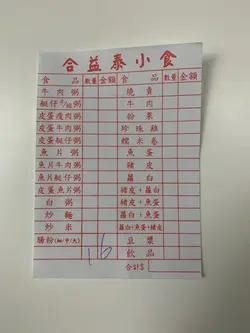 合益泰小食
食 品 數量 金額 食 品 數量 金額
牛肉粥 燒賣
艇仔粥 牛肉
皮蛋瘦肉粥 粉果
皮蛋牛肉粥 珍珠雞
皮蛋艇仔粥 糯米卷
魚片粥 魚蛋
魚片牛肉粥 豬皮
魚片艇仔粥 蘿白
皮蛋魚片粥 豬皮+蘿白
白粥 豬皮+魚蛋
炒麵 蘿白+魚蛋
炒米 蘿白+魚蛋+豬皮
腸粉(細/中/大) 16 豆漿
飲品
合計$